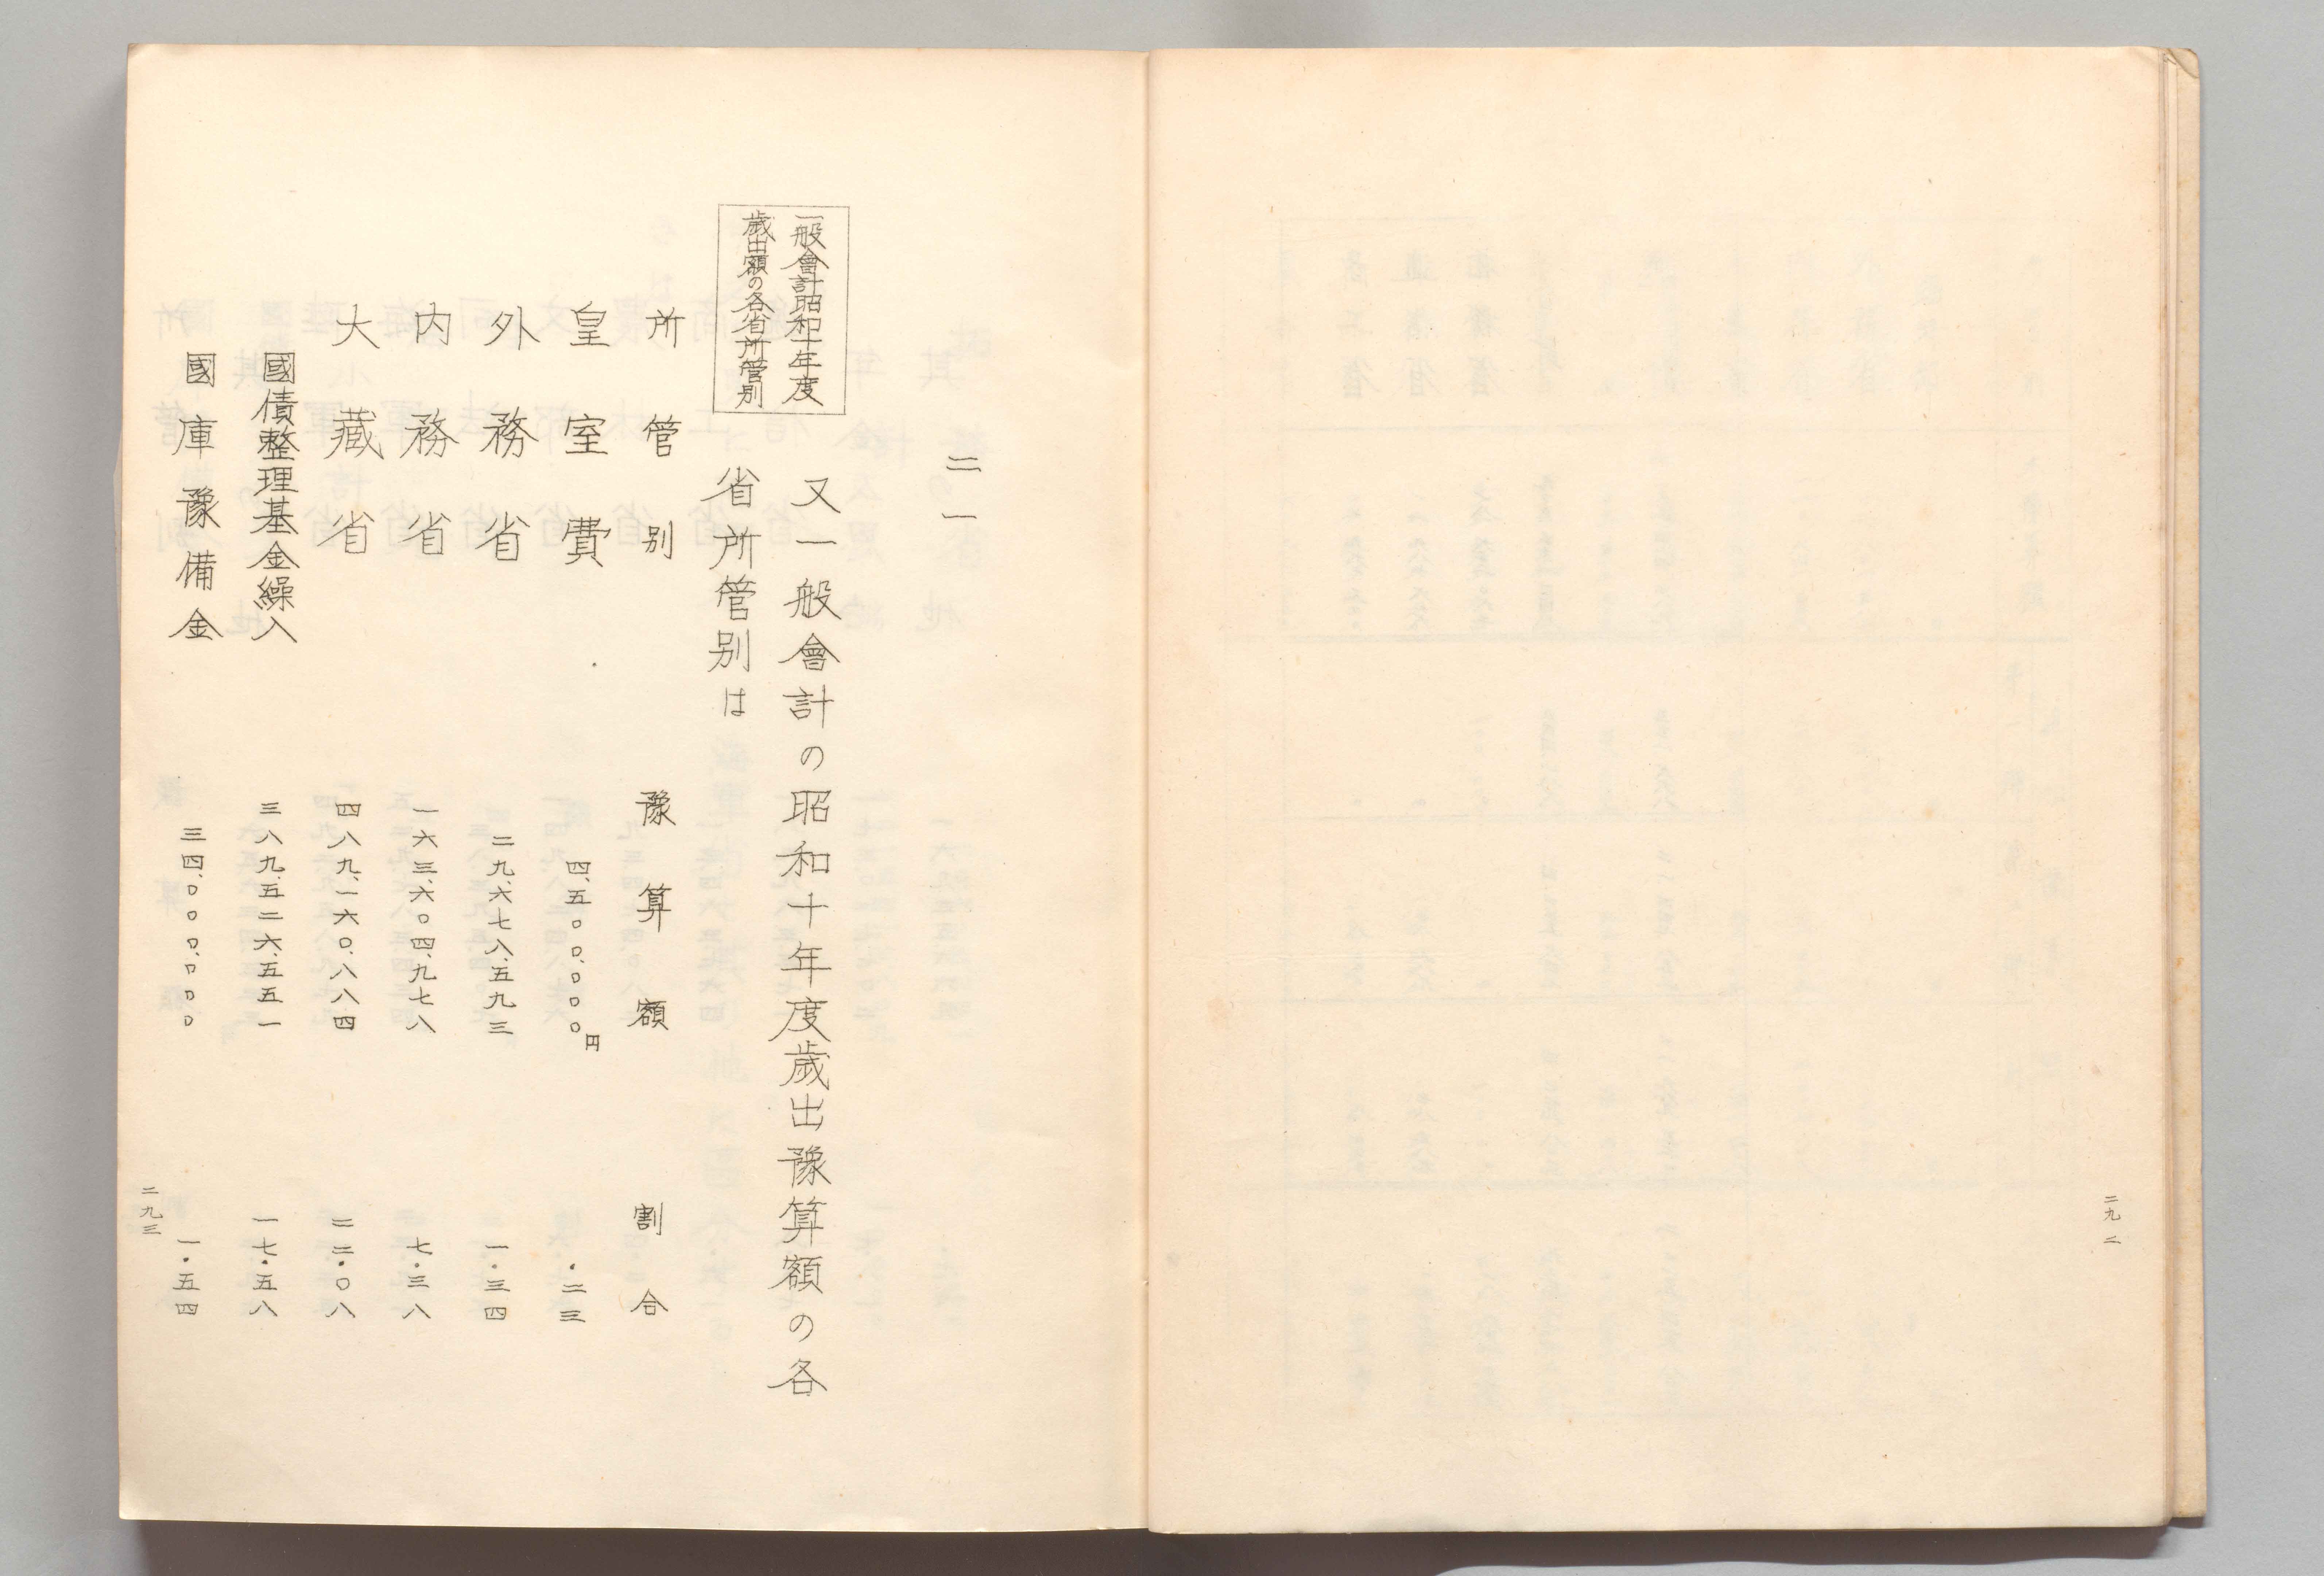 二九二
二一
一般會計昭和十年度
歲出額の各省所管別
又一般會計の昭和十年度歲出豫算額の各
省所管別は
所管別 豫算額 割合
皇室費 四、五〇〇、〇〇〇円 ・二三
外務省 二九、六七八、五九三 一・三四
内務省 一六三、六〇四、九七八 七・三八
大藏省 四八九、一六〇、八八四 二二・〇八
國債整理基金繰入 三八九、五二六、五五一 一七・五八
國庫豫備金 三四、〇〇〇、〇〇〇 一・五四
二九三